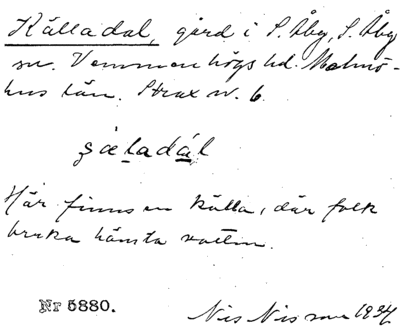 Källadal, gård i S. Åby, S. Åby
sn. Vemmenhögs hd. Malmö-
hus län. Strax w. 6
Här finns en källa, där folk
bruka hämta vatten.
Nr 5880.
Nils Nilsson 1934